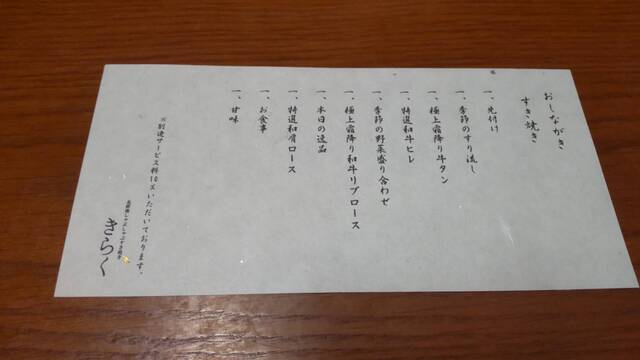 おしながき
すき焼き
一、先付け
一、季節のすり流し
一、極上霜降り牛タン
一、特選和牛ヒレ
一、季節の野菜盛り合わせ
一、極上霜降り和牛リブロース
一、本日の逸品
一、特選和肩ロース
一、お食事
一、甘味
※別途サービス料10%いただいております。
きらく